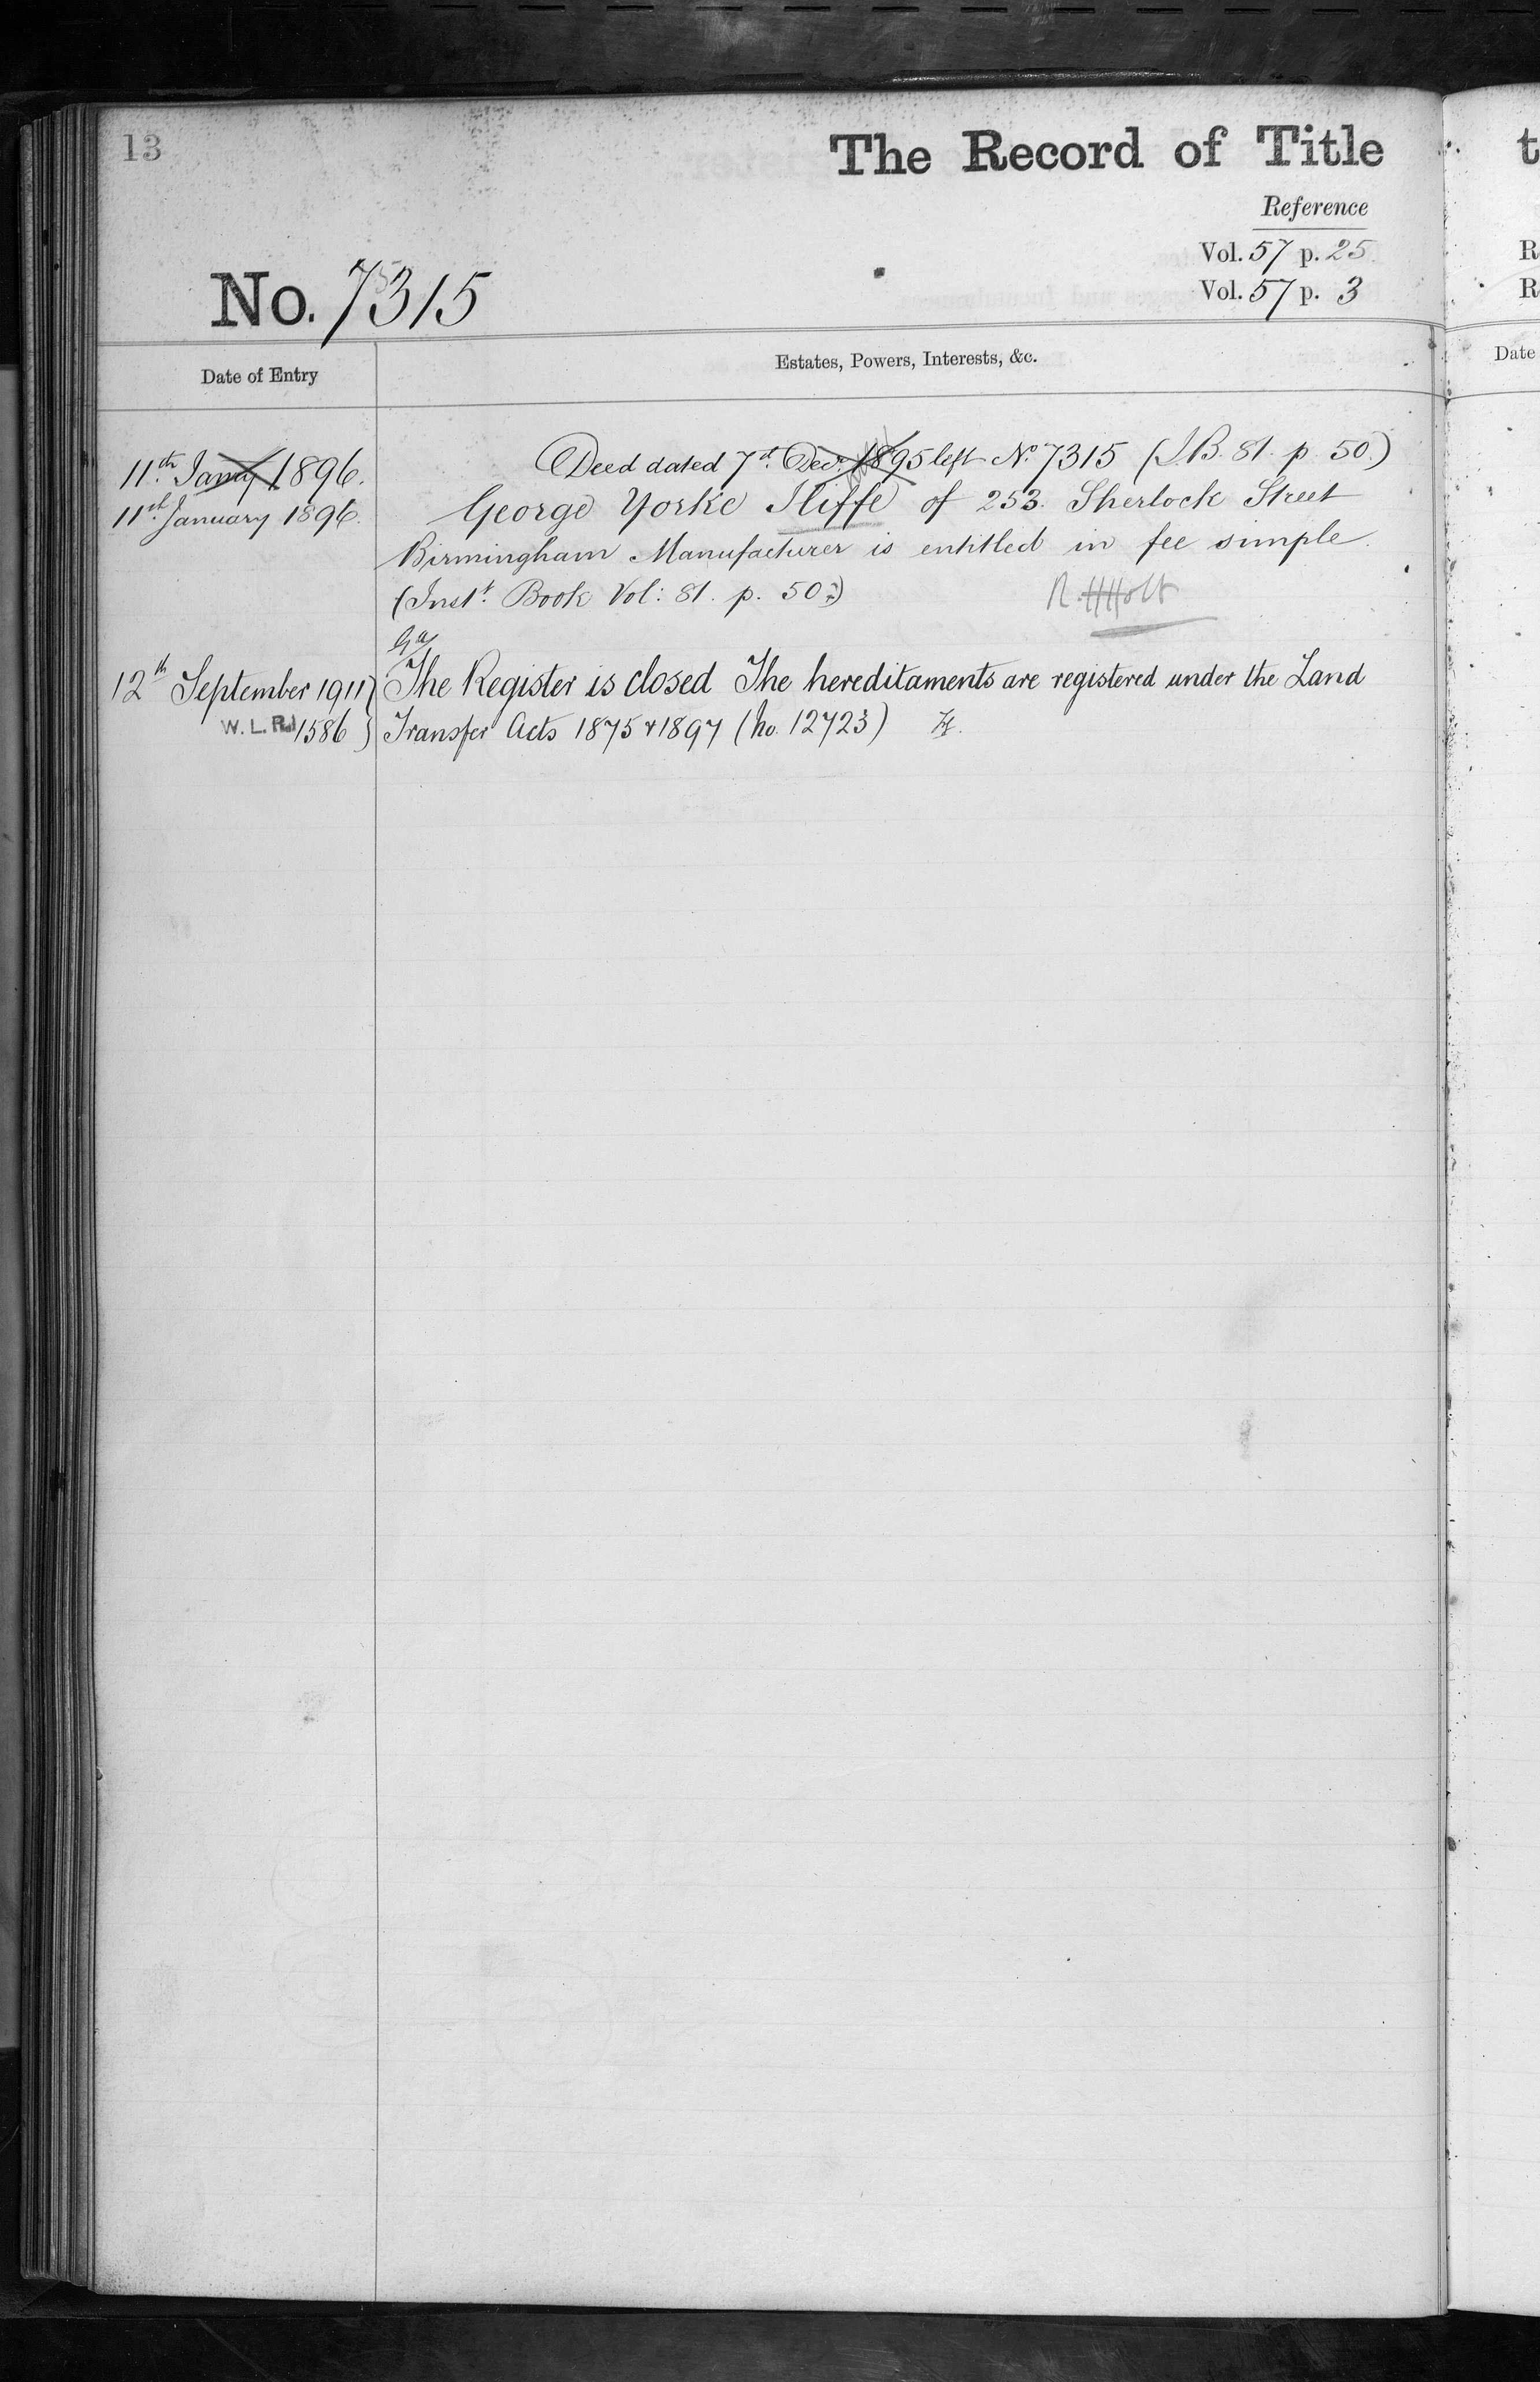 13
The Record of Title
Reference
Vol. 57 p. 25.
Vol. 57 p. 3
No. 7315
Date of Entry
Estates, Powers, Interests, &c.
11th. Jany 1896.
Deed dated 7th. Decr. 1895 left No. 7315 (I.B. 81. p. 50.)
11th. January 1896.
George Yorke Iliffe of 253. Sherlock Street
Birmingham Manufacturer is entitled in fee simple.
(Inst. Book Vol: 81. p. 50.)
R. H Holt
12th September 1911
The Register is closed The hereditaments are registered under the Land
W. L. R. 1586
Transfer Acts 1875 & 1897 (No. 12723)
t
R
R
Date